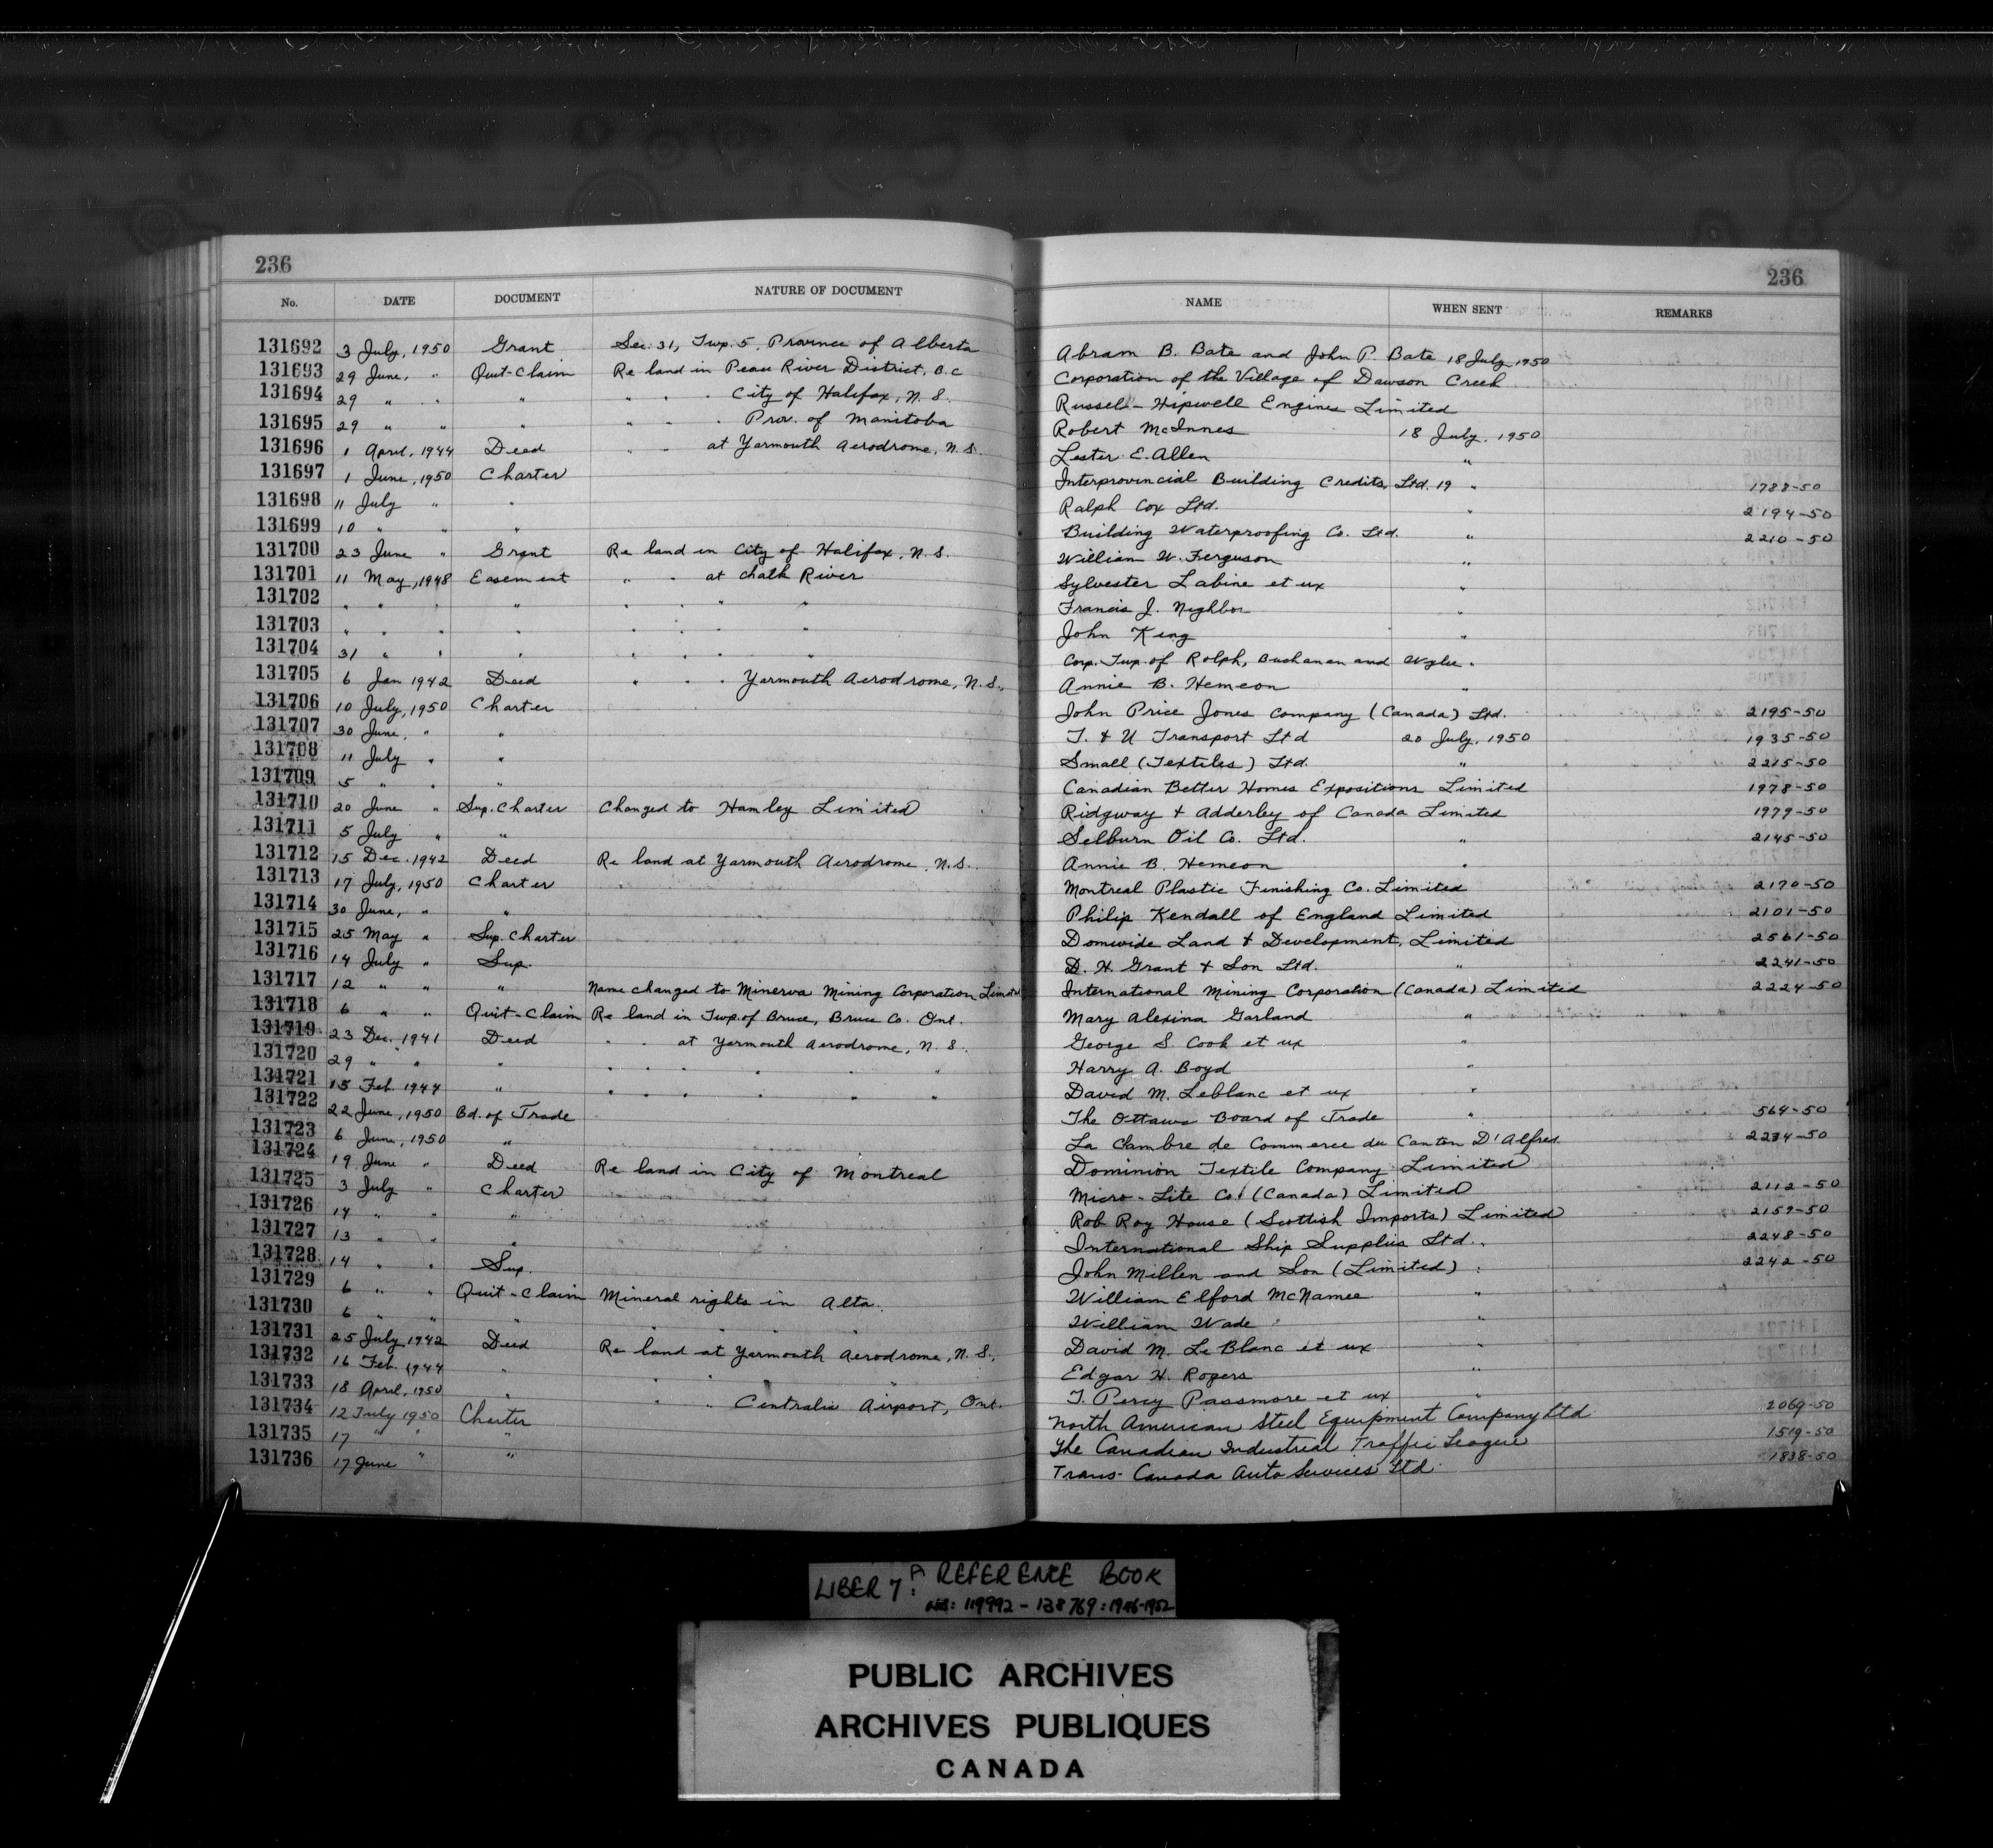 236
236
No. DATE DOCUMENT NATURE OF DOCUMENT NAME WHEN SENT REMARKS
131692 3 July, 1950 Grant Sec. 31, Twp. 5, Province of Alberta Abram B. Bate and John P. Bate 18 July 1950
131693 29 June, " Quit-Claim Re land in Peace River District, B.C Corporation of the Village of Dawson Creek
131694 29 " " " " " " City of Halifax, N.S. Russel-Hipwell Engines Limited
131695 29 " " " " " " Prov. of Manitoba Robert McInnes 18 July, 1950
131696 1 April, 1944 Deed " " at Yarmouth Aerodrome, N.S. Lester E. Allen "
131697 1 June, 1950 Charter Interprovincial Building Credits, Ltd. 19 " 1788-50
131698 11 July " " Ralph Cox Ltd. " 2194-50
131699 10 " " " Building Waterproofing Co. Ltd. " 2210-50
131700 23 June " Grant Re land in City of Halifax, N.S. William W. Ferguson "
131701 11 May, 1948 Easement " " at Chalk River Sylvester Labine et ux "
131702 " " " " " " " Francis J. Neghbor "
131703 " " " " " " " " John King "
131704 31 " " " " " " " Corp. Twp. of Rolph, Buchanan and Wylie "
131705 6 Jan 1942 Deed " " " Yarmouth Aerodrome, N.S., Annie B. Hemeon "
131706 10 July, 1950 Charter John Price Jones Company (Canada) Ltd. 2195-50
131707 30 June, " " T. & U Transport Ltd 20 July, 1950 1935-50
131708 11 July " " Small (Textiles) Ltd. " 2215-50
131709 5 " " " Canadian Better Homes Expositions Limited 1978-50
131710 20 June " Sup. Charter Changed to Hamley Limited Ridgway & Adderley of Canada Limited 1979-50
131711 5 July " " Selburn Oil Co. Ltd. " 2145-50
131712 15 Dec. 1942 Deed Re land at Yarmouth Aerodrome, N.S. Annie B. Hemeon "
131713 17 July, 1950 Charter Montreal Plastic Finishing Co. Limited 2170-50
131714 30 June, " " Philip Kendall of England Limited 2101-50
131715 25 May " Sup. Charter Domwide Land & Development, Limited 2561-50
131716 14 July " Sup. D. H. Grant & Son Ltd. " 2241-50
131717 12 " " " Name changed to Minerva Mining Corporation Limited International Mining Corporation (Canada) Limited 2224-50
131718 6 " " Quit-Claim Re land in Twp. of Bruce, Bruce Co. Ont. Mary Alexina Garland "
131719 23 Dec. 1941 Deed " " at Yarmouth Aerodrome, N.S. George S. Cook et ux "
131720 29 " " " " " " " " " Harry A. Boyd "
131721 15 Feb. 1944 " " " " " " " David M. Leblanc et ux "
131722 22 June, 1950 Bd. of Trade The Ottawa Board of Trade " 564-50
131723 6 June, 1950 " La Chambre de Commerce du Canton D'Alfred 2234-50
131724 19 June " Deed Re land in City of Montreal Dominion Textile Company Limited
131725 3 July " Charter Micro-Lite Co. (Canada) Limited 2112-50
131726 14 " " " Rob Roy House (Scottish Imports) Limited 2159-50
131727 13 " " " International Ship Supplies Ltd. " 2248-50
131728 14 " " Sup. John Millen and Son (Limited) " 2242-50
131729 6 " " Quit-Claim Mineral rights in Alta. William Elford McNamee "
131730 6 " " " " " " William Wade "
131731 25 July 1942 Deed Re land at Yarmouth Aerodrome, N.S., David M. LeBlanc et ux "
131732 16 Feb. 1944 " " " " Edgar H. Rogers "
131733 18 April, 1950 " " " Centralia Airport, Ont. T. Percy Passmore et ux "
131734 12 July 1950 Charter North American Steel Equipment Company Ltd 2069-50
131735 17 " " " The Canadian Industrial Traffic League 1519-50
131736 17 June " " Trans-Canada Auto Services Ltd 1838-50
LIBER 7A: REFERENCE BOOK
NOS: 119992-138769: 1946-1952
PUBLIC ARCHIVES
ARCHIVES PUBLIQUES
CANADA